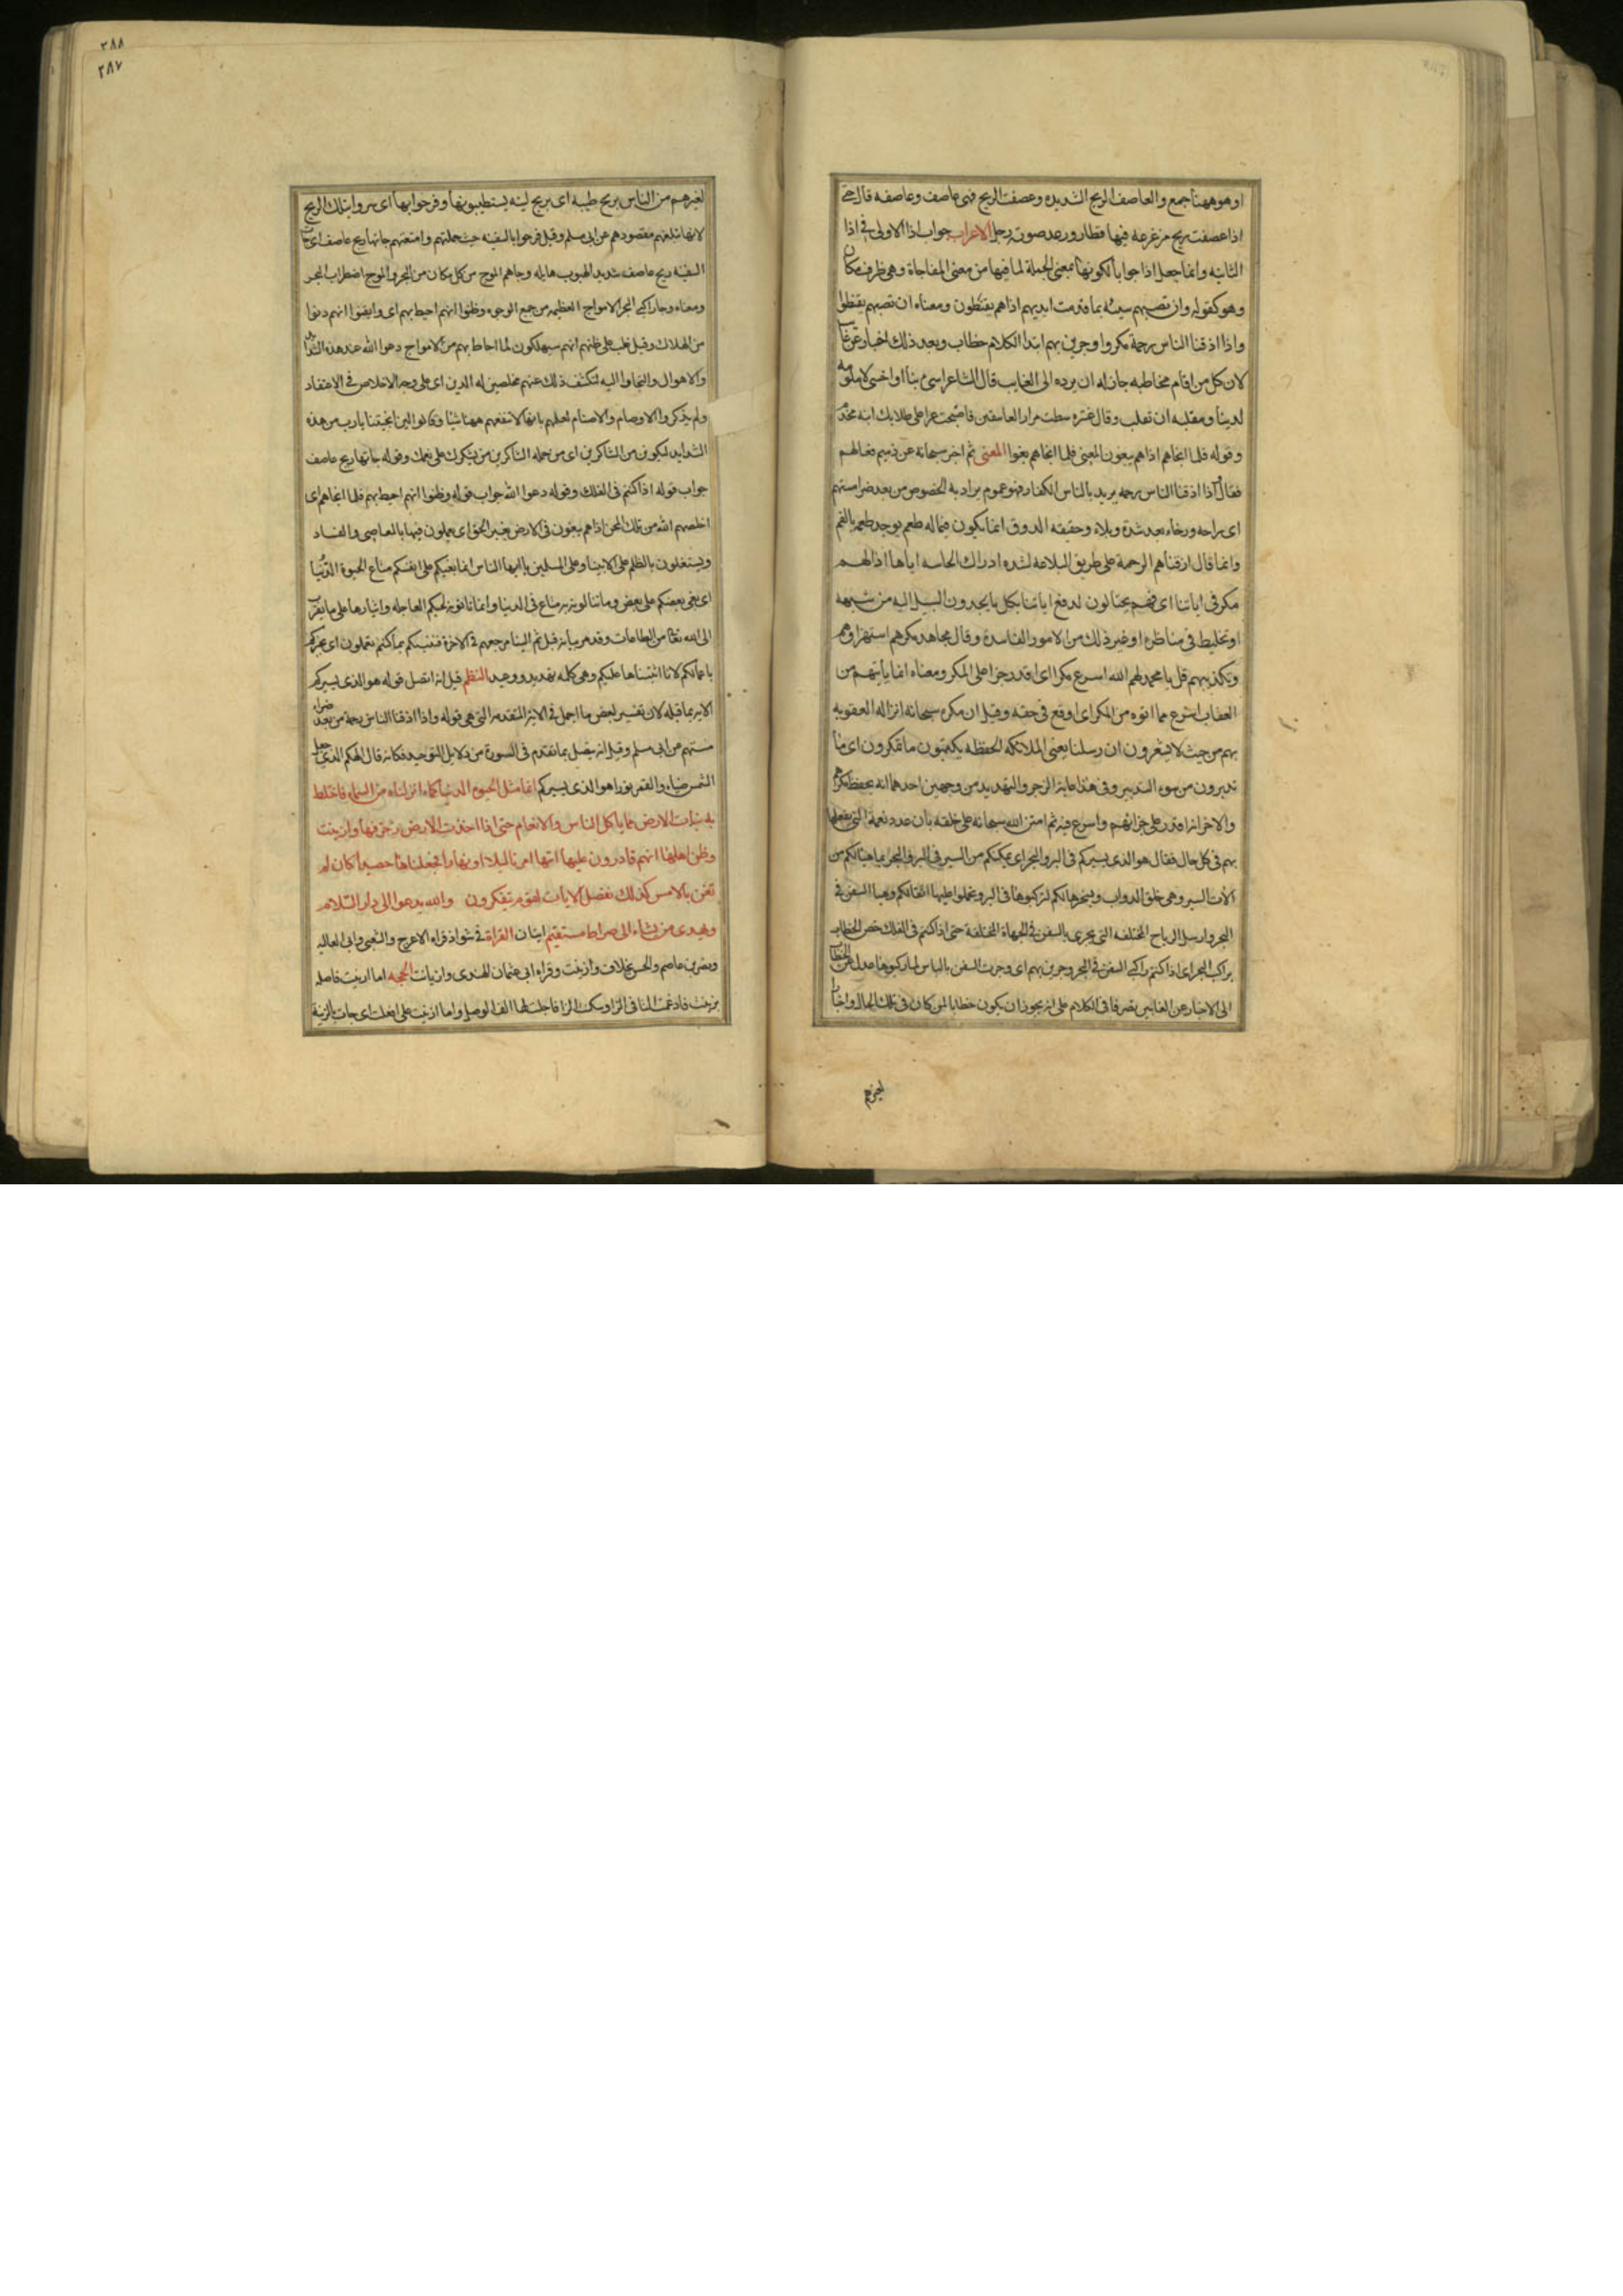 او هو ههنا جمع والعاصف الريح الشديده وعصفت الريح فهى عاصف وعاصفه قال حتى
اذا عصفت ريح مزعزعة فيها قطار ورعد صوته زجل الاعراب جواب اذا الاولى فى اذا
الثانيه وانما جعل اذا جوابا لكونها بمعنى الجملة لما فيها من معنى المفاجاة وهى ظرف مكان
وهو كقوله وان تصبهم سيئه بما قدمت ايديهم اذاهم يقنطون ومعناه ان تصبهم يقنطوا
واذا اذقنا الناس رحمة مكروا وجرين بهم ابتدا الكلام خطاب وبعد ذلك اخبار عن غايب
لان كل من اقام مخاطبه جاز له ان يرده الى الغايب قال الشاعر اسى بنا او احسنى لا ملومه
لدينا ومقليه ان تقلب وقال عنتره شطت مزار العاشقين فاصبحت عسرا على طلابك ابنه مخرم
وقوله فلما انجاهم اذاهم يبغون المعنى فلما انجاهم بغوا المعنى ثم اخبر سبحانه عن ذميم فعالهم
فقال اذا اذقنا الناس رحمه يريد بالناس الكفار فهو عموم يراد به الخصوص من بعد ضرا مستهم
اى راحه ورخاء بعد شدة وبلاء وحقيقه الذوق انما يكون فيما له طعم يوجد طعمه بالفم
وانما قال اذقناهم الرحمة على طريق البلاغة لشده ادراك الحاسه اياها اذا لهم
مكر فى اياتنا اى فهم يحتالون لدفع اياتنا بكل ما يجدون السبيل اليه من شبهه
او تخليط فى مناظره او غير ذلك من الامور الفاسدة وقال مجاهد مكرهم استهزاؤهم
وتكذيبهم قل يا محمد لهم الله اسرع مكرا اى اقدر جزا على المكر ومعناه انما يأتيهم من
العقاب اسرع مما اتوه من المكر اى اوقع فى حقه وقيل ان مكره سبحانه انزاله العقوبه
بهم من حيث لا يشعرون ان رسلنا يعنى الملائكه الحفظه يكتبون ما تمكرون اى ما
تدبرون من سوء التدبير وفى هذا غاية الزجر والتهديد من وجهين احدهما انه يحفظ مكرهم
والاخر انه اقدر على جزائهم واسرع فيه ثم امتن الله سبحانه على خلقه بان عدد نعمه التى يفعلها
بهم فى كل حال فقال هو الذى يسيركم فى البر والبحر اى يمكنكم من السير فى البر والبحر بما هيا لكم من
آلات السير وهى خلق الدواب وتسخيرها لكم لتركبوها فى البر وتحملوا عليها اثقالكم وهيا السفن فى
البحر وارسل الرياح المختلفه التى يجرى بالسفن فى الجهاة المختلفة حتى اذا كنتم فى الفلك خص الخطاب
براكب البحر اى اذا كنتم راكبى السفن فى البحر وجرين بهم اى وجرت السفن بالناس لما ركبوها عدل عن الخطاب
الى الاخبار عن الغايبين تصرفا فى الكلام على انه يجوز ان يكون خطابا لمن كان فى تلك الحال واخبارا
لغيرهم
٢٨٨
٢٨٧
لغيرهم من الناس بريح طيبه اى بريح لينه يستطيبونها وفرحوا بها اى سروا بتلك الريح
لانها تبلغهم مقصودهم عن ابى مسلم وقيل فرحوا بالسفينه حيث حملتهم وامتعتهم جاتها ريح عاصف اى جات
السفينه ريح عاصف شديد الهبوب هايله وجاهم الموج من كل مكان من البحر والموج اضطراب البحر
ومعناه وجا راكبى البحر الامواج العظيمه من جميع الوجوه وظنوا انهم احيط بهم اى وايقنوا انهم دنوا
من الهلاك وقيل غلب على ظنهم انهم سيهلكون لما احاط بهم من الامواج دعوا الله عند هذه الشدايد
والاهوال والتجاوا اليه لتكشف ذلك عنهم مخلصين له الدين اى على وجه الاخلاص فى الاعتقاد
ولم يذكروا الاوصام والاصنام لعلمهم بانها لا تنفعهم ههنا شيئا وقالوا لئن انجيتنا يارب من هذه
الشدايد لنكونن من الشاكرين اى من جمله الشاكرين من يشكرك على نعمك وقوله جاتها ريح عاصف
جواب قوله اذا كنتم فى الفلك وقوله دعوا الله جواب قوله وظنوا انهم احيط بهم فلما انجاهم اى
اخلصهم الله من تلك المحن اذاهم يبغون فى الارض بغير الحق اى يعملون فيها بالمعاصى والفساد
ويستغلون بالظلم على الانبيا وعلى المسلمين يا ايها الناس انما بغيكم على انفسكم متاع الحيوة الدنيا
اى بغى بعضكم على بعض وما تنالونه به متاع فى الدنيا وانما تاتونه لحبكم العاجله وايثارها على ما يقرب
الى الله تعالى من الطاعات وقد مر بيانه قبل ثم الينا مرجعهم فى الاخرة فننبئكم بما كنتم تعملون اى نخبركم
باعمالكم لانا اثبتناها عليكم وهى كلمه تهديد ووعيد النظم قيل انه اتصل قوله هو الذى يسيركم
الايه بما قبله لان تفسير لبعض ما اجمل فى الاية المتقدمه التى هى قوله واذا اذقنا الناس رحمة من بعد ضراء
مستهم عن ابى مسلم وقيل انه يتصل بما تقدم فى السورة من دلايل التوحيد فكانه قال الهكم الذى جعل
الشمس ضياء والقمر نورا هو الذى يسيركم انما مثل الحيوه الدنيا كماء انزلناه من السماء فاختلط
به نبات الارض مما يأكل الناس والانعام حتى اذا اخذت الارض زخرفها وازينت
وظن اهلها انهم قادرون عليها اتيها امرنا ليلا او نهارا فجعلناها حصيدا كان لم
تغن بالامس كذلك نفصل الايات لقوم يتفكرون والله يدعوا الى دار السلام
ويهدى من يشاء الى صراط مستقيم ايتان القراة فى شواذ قراه الاعرج والشعبى وابى العاليه
ونصر بن عاصم والحسن بخلاف وازينت وقراه ابى عثمان الهندى وازيانت الحجه اما ازينت فاصله
تزينت فادغمت التا فى الزا وسكنت الزا فاجتلبت لها الف الوصل واما ازينت على افعلت اى جات بالزينة